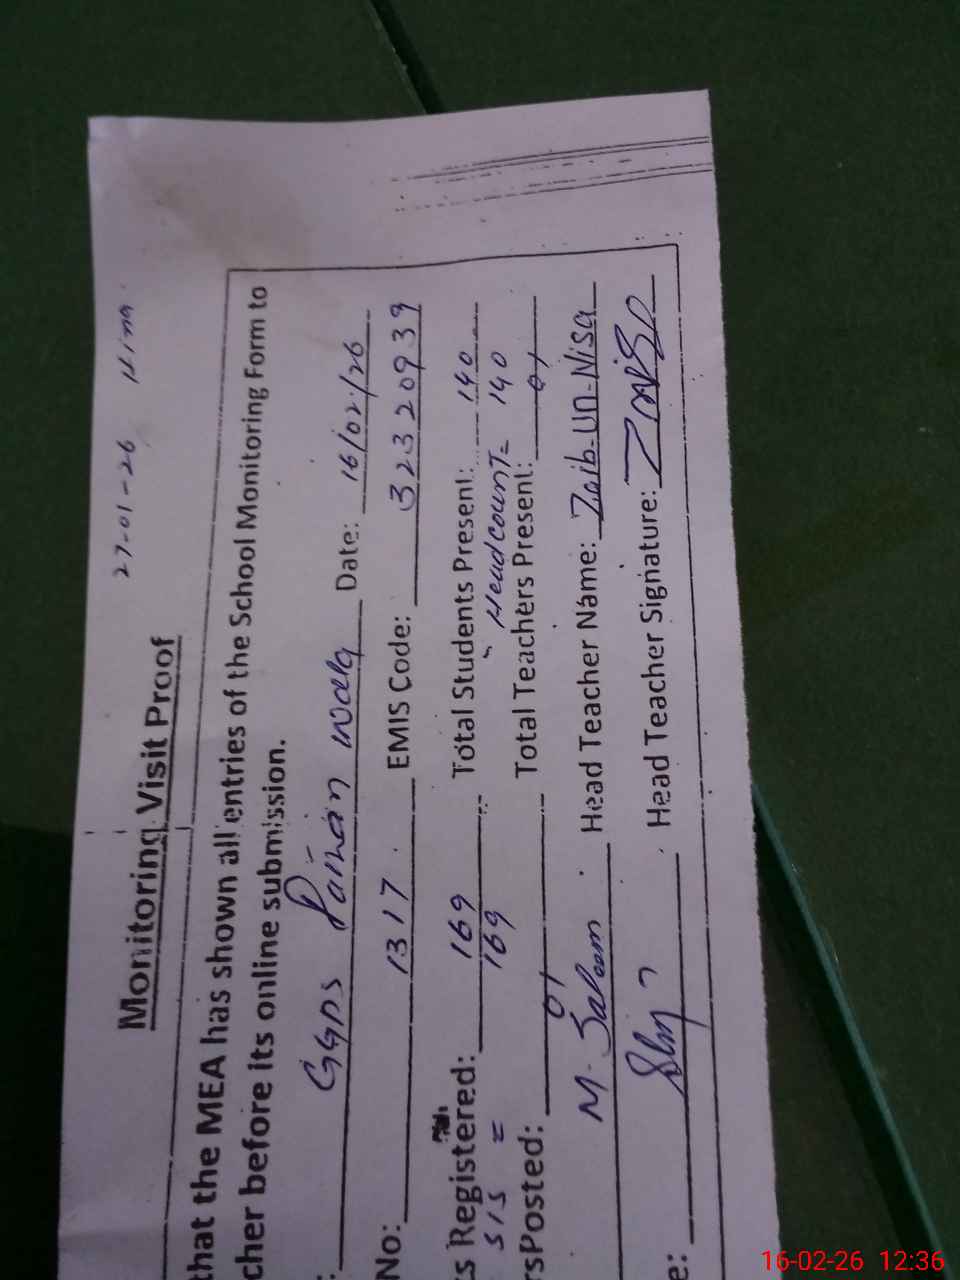 27-01-26
Monitoring Visit Proof
that the MEA has shown all entries of the School Monitoring Form to
cher before its online submission.
: GGPS Paihan wala Date: 16/02/26
No: 1317 EMIS Code: 32320939
s Registered: 169 Total Students Present: 140
SIS = 169 Headcount= 140
rsPosted: 01 Total Teachers Present: 01
M. Saleem Head Teacher Name: Zaib-Un-Nisa
e: Head Teacher Signature:
16-02-26 12:36